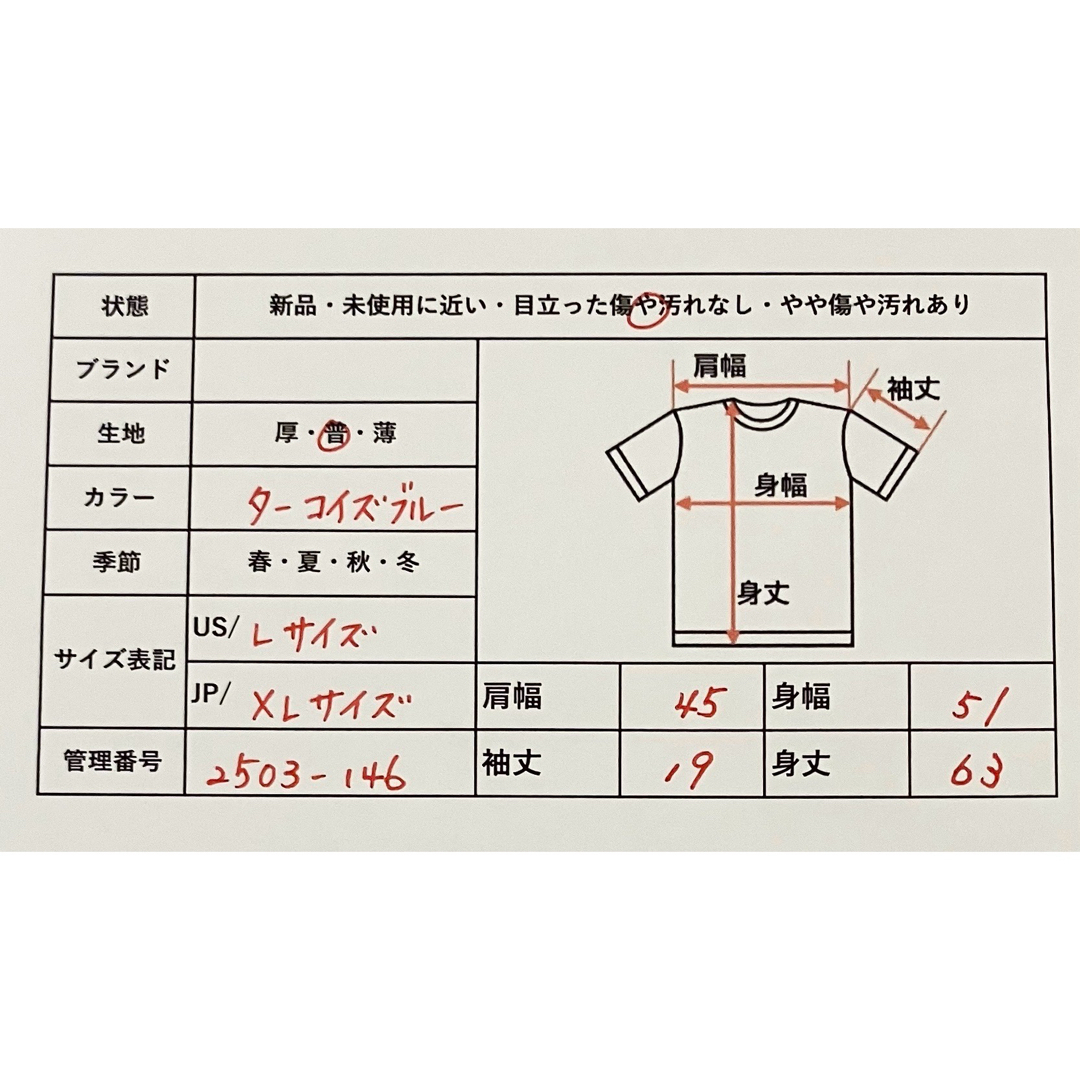 状態 新品・未使用に近い・目立った傷や汚れなし・やや傷や汚れあり
ブランド
生地 厚・普・薄
カラー ターコイズブルー
季節 春・夏・秋・冬
サイズ表記
US/ Lサイズ
JP/ XLサイズ
管理番号 2503-146
肩幅
袖丈
身幅
身丈
肩幅 45 身幅 51
袖丈 19 身丈 63